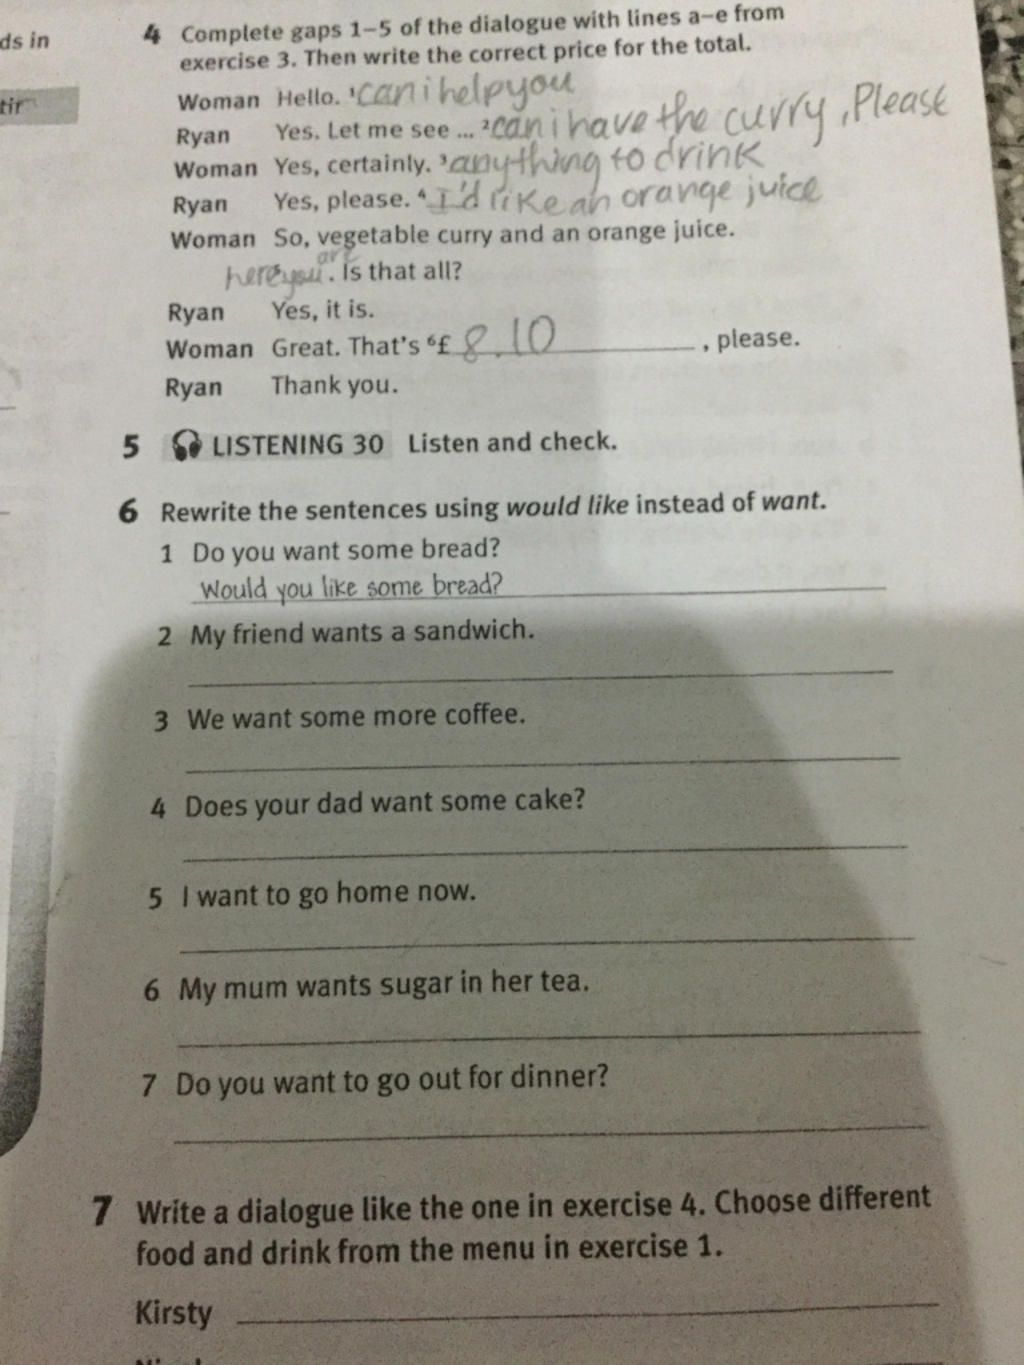 ds in
tir
4 Complete gaps 1–5 of the dialogue with lines a–e from
exercise 3. Then write the correct price for the total.
Woman Hello. ¹can i help you
Ryan Yes. Let me see ... ²can i have the curry, Please
Woman Yes, certainly. ³anything to drink
Ryan Yes, please. ⁴I'd like an orange juice
Woman So, vegetable curry and an orange juice.
here you are. Is that all?
Ryan Yes, it is.
Woman Great. That's ⁶£ 8.10, please.
Ryan Thank you.
5 LISTENING 30 Listen and check.
6 Rewrite the sentences using would like instead of want.
1 Do you want some bread?
Would you like some bread?
2 My friend wants a sandwich.
3 We want some more coffee.
4 Does your dad want some cake?
5 I want to go home now.
6 My mum wants sugar in her tea.
7 Do you want to go out for dinner?
7 Write a dialogue like the one in exercise 4. Choose different
food and drink from the menu in exercise 1.
Kirsty